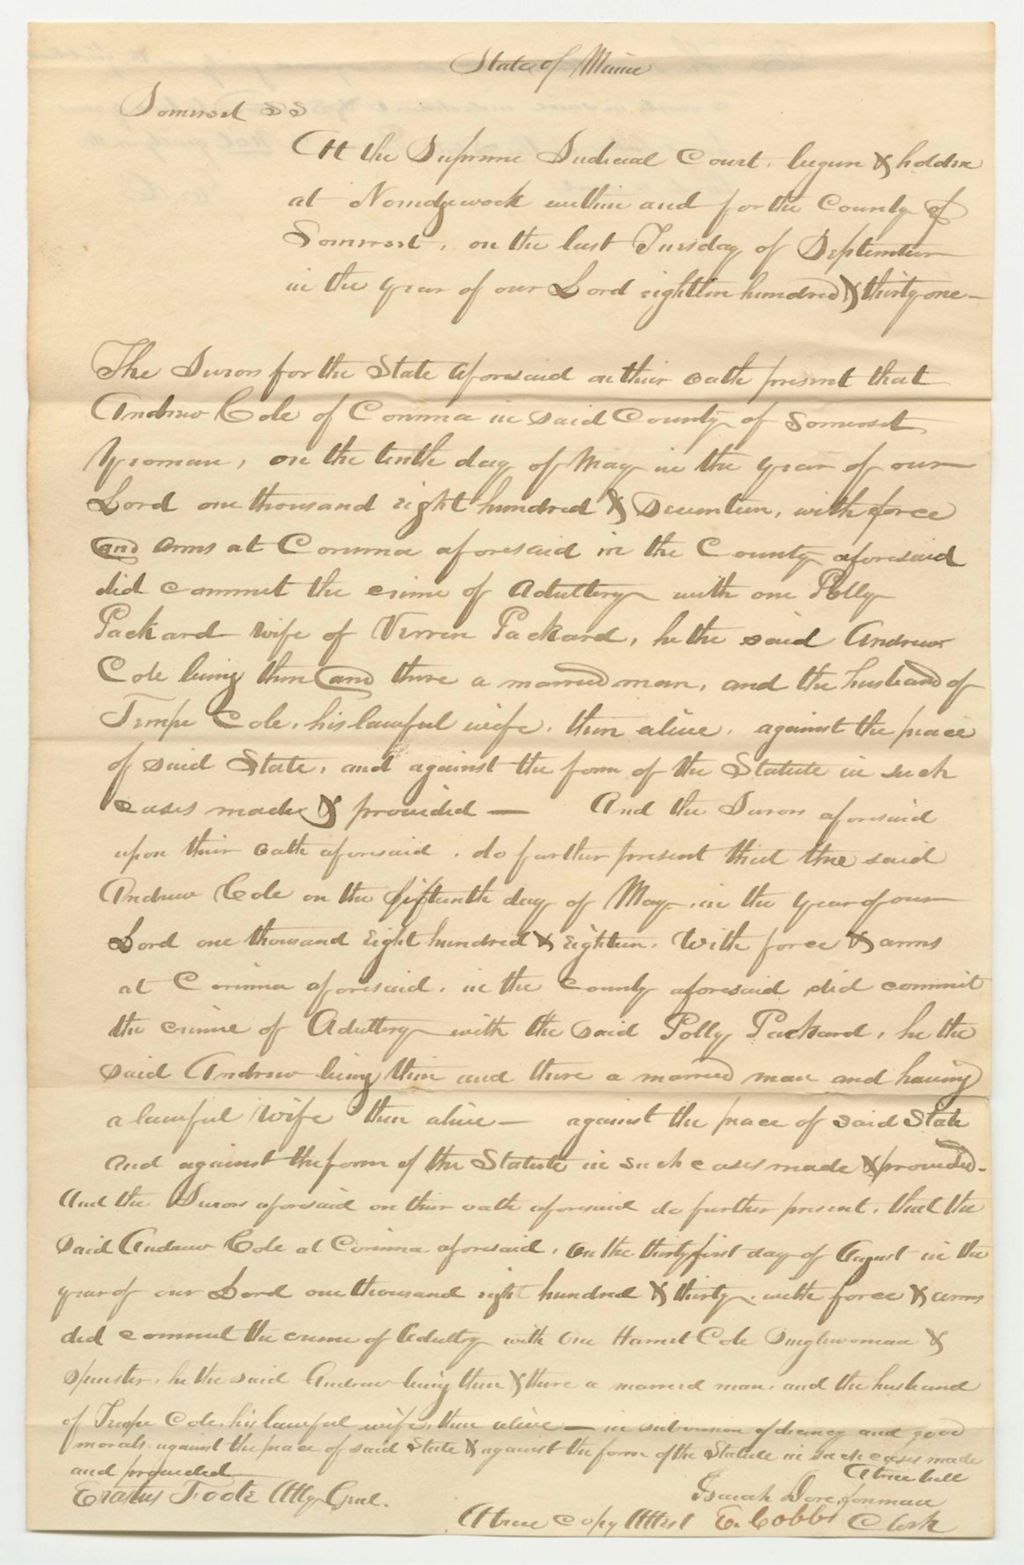 State of Maine
Somerset SS
At the Supreme Judicial Court, begun & holden
at Norridgewock within and for the County of
Somerset, on the last Tuesday of September
in the year of our Lord eighteen hundred & thirty one—
The Jurors for the State aforesaid on their oath present that
Andrew Cole of Corinna in said County of Somerset,
Yeoman, on the tenth day of May in the year of our
Lord one thousand eight hundred & Seventeen, with force
and arms at Corinna aforesaid in the County aforesaid
did commit the crime of Adultery with one Polly
Packard wife of Packard, he the said Andrew
Cole being then and there a married man, and the husband of
Tempe Cole, his lawful wife, then alive, against the peace
of said State, and against the form of the Statute in such
cases made & provided — And the Jurors aforesaid
upon their oath aforesaid, do further present that the said
Andrew Cole on the fifteenth day of May, in the year of our
Lord one thousand Eight hundred & Eighteen, With force & arms
at Corinna aforesaid, in the County aforesaid did commit
the crime of Adultery with the said Polly Packard, he the
said Andrew being then and there a married man and having
a lawful wife then alive — against the peace of said State
and against the form of the Statute in such cases made & provided—
And the Jurors aforesaid on their oath aforesaid do further present, that the
said Andrew Cole at Corinna aforesaid, on the thirty first day of August in the
year of our Lord one thousand eight hundred & thirty, with force & arms
did commit the crime of Adultry with one Harriet Cole Singlewoman &
Spinster, he the said Andrew being then & there a married man, and the husband
of Tempe Cole, his lawful wife, then alive — in subversion of decency and good
morals, against the peace of said State & against the form of the Statute in such cases made
and provided
A true bill
Erastus Foote Atty Genl.
Isaiah Dore, foreman
A true copy Attest E. Cobb Clerk